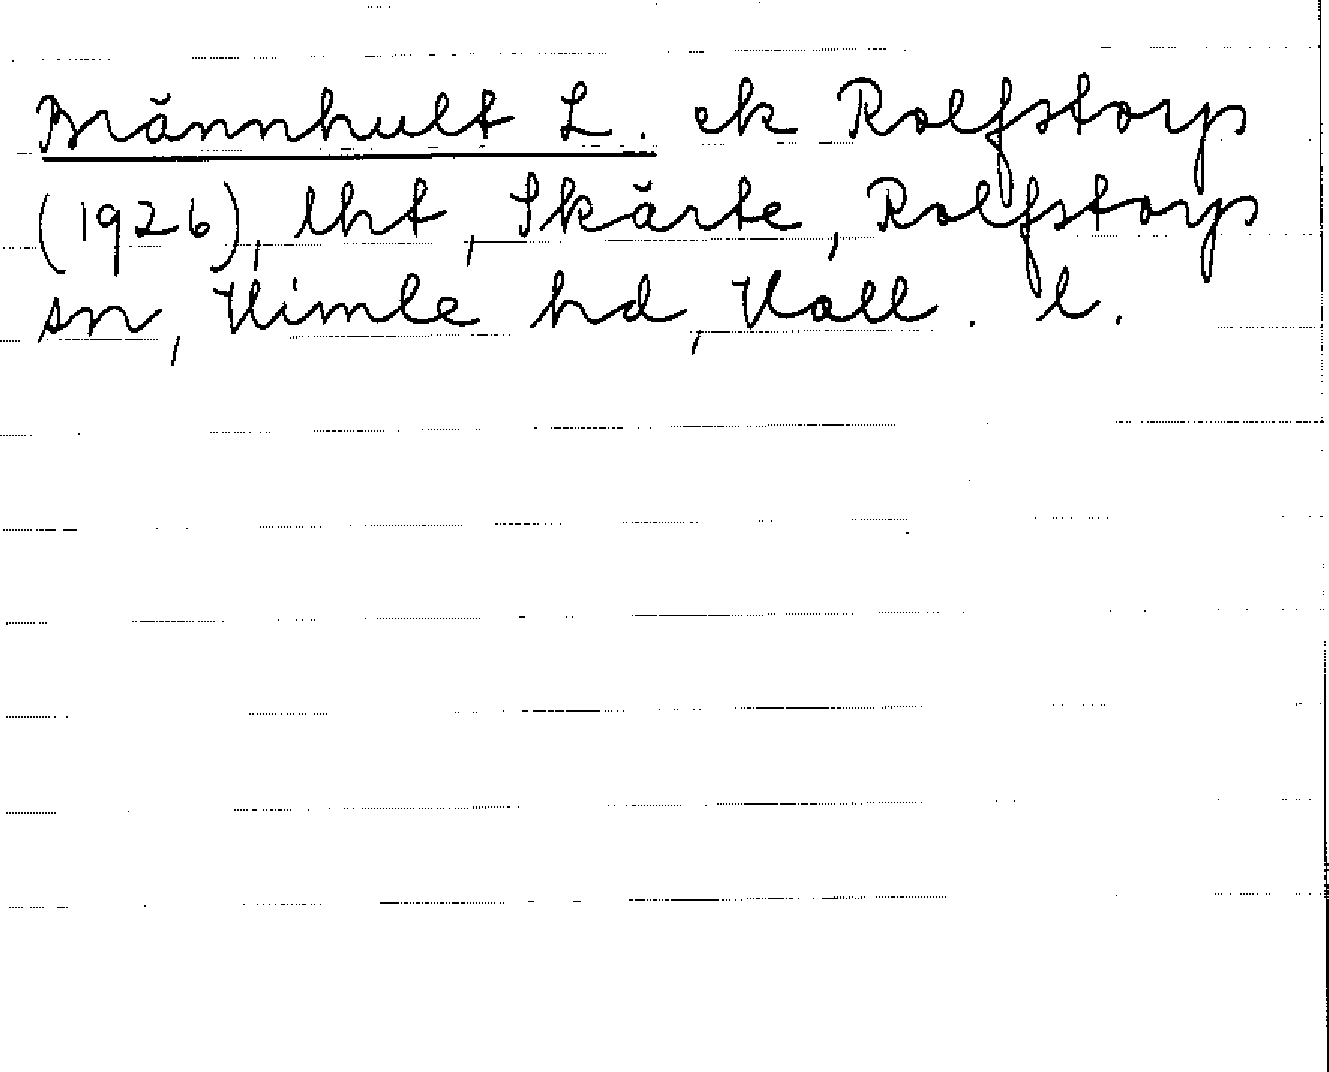 Brännhult L. ek Rolfstorp
(1926), lht, Skärte, Rolfstorps
sn, Himle hd, Hall. l.